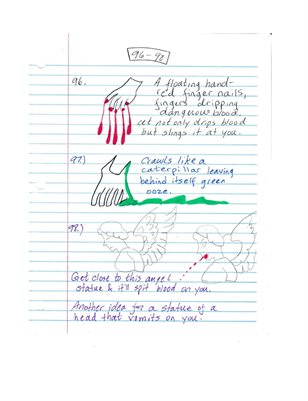 96-98
96.
A floating hand-
red finger nails,
fingers dripping
dangerous blood,
not only drips blood
but slings it at you.
97.)
Crawls like a
caterpillar leaving
behind itself green
ooze.
98.)
Get close to this angel
statue & it'll spit blood on you.
Another idea for a statue of a
head that vomits on you.